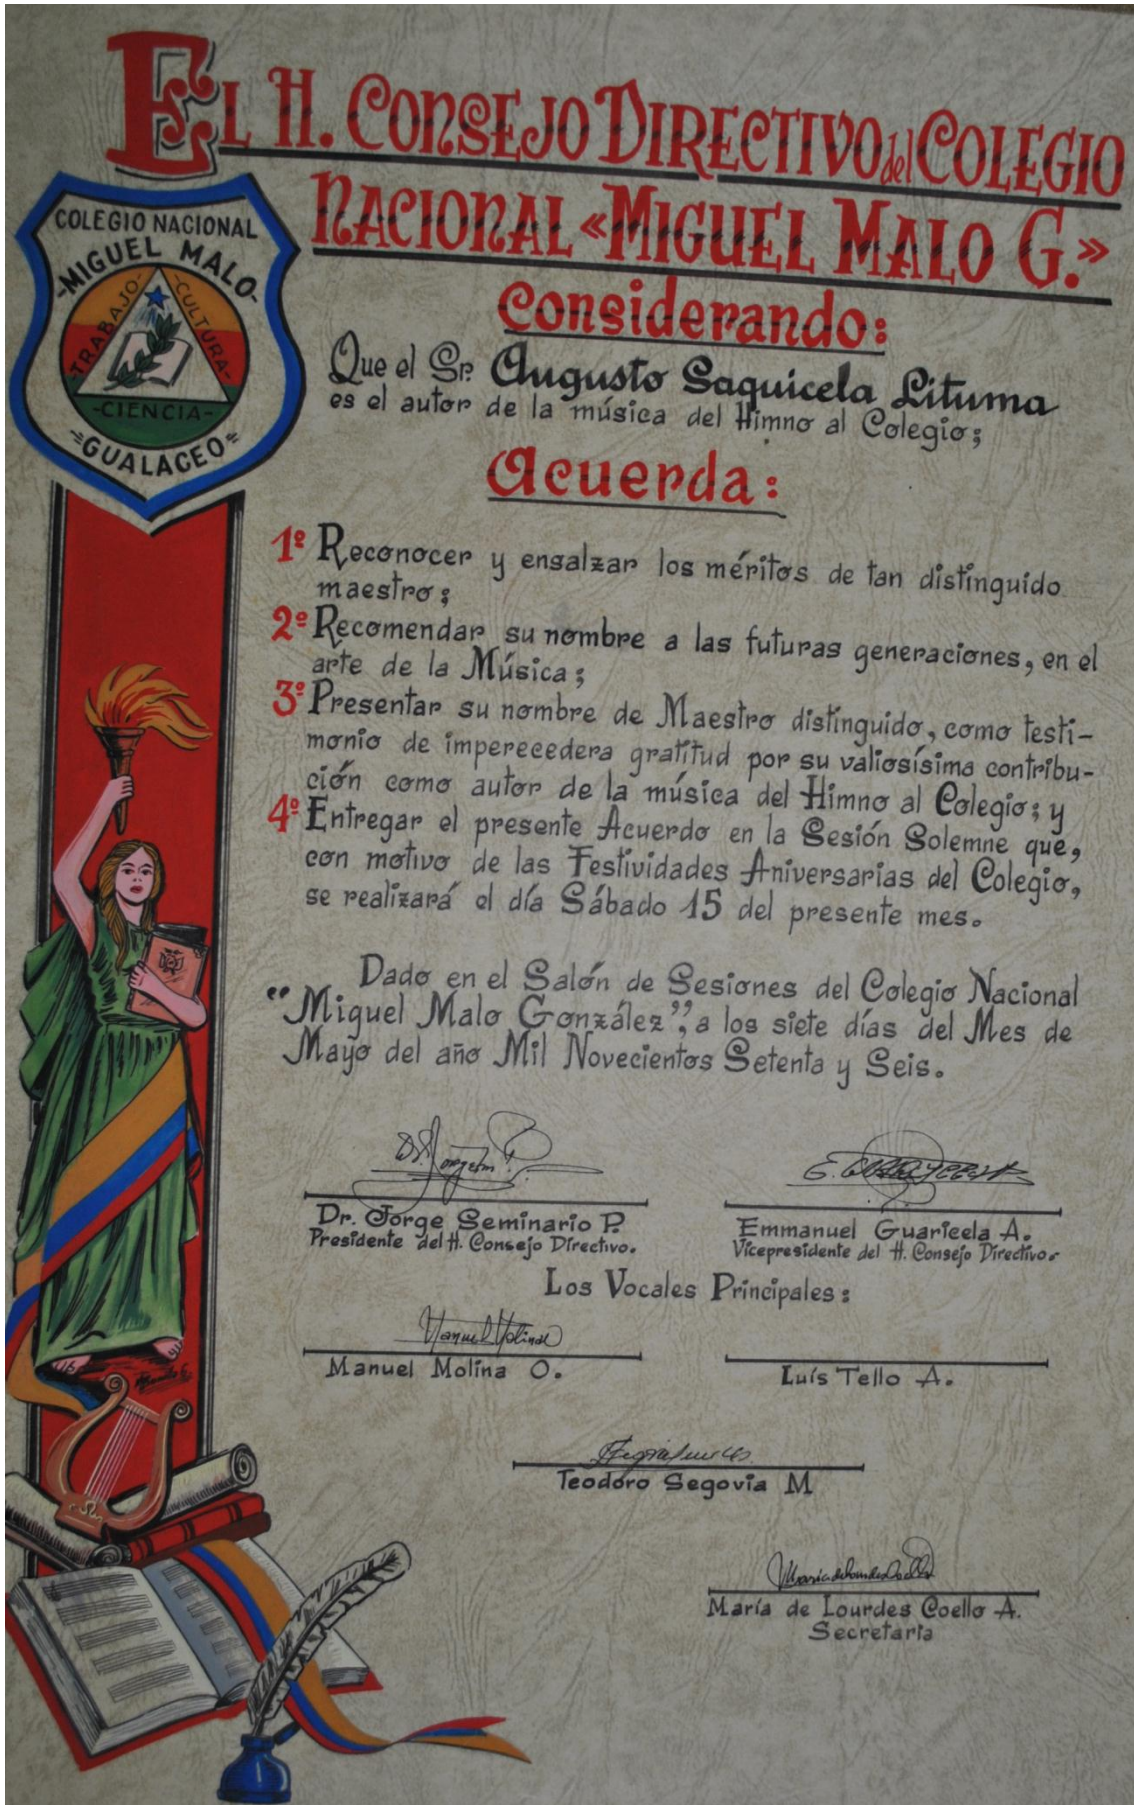 El H. Consejo Directivo del Colegio
Nacional «Miguel Malo G.»
COLEGIO NACIONAL
-MIGUEL MALO-
-TRABAJO-
-CULTURA-
-CIENCIA-
=GUALACEO=
Considerando:
Que el Sr. Augusto Saquicela Lituma
es el autor de la música del Himno al Colegio;
Acuerda:
1º Reconocer y ensalzar los méritos de tan distinguido
maestro;
2º Recomendar su nombre a las futuras generaciones, en el
arte de la Música;
3º Presentar su nombre de Maestro distinguido, como testi-
monio de imperecedera gratitud por su valiosísima contribu-
ción como autor de la música del Himno al Colegio; y
4º Entregar el presente Acuerdo en la Sesión Solemne que,
con motivo de las Festividades Aniversarias del Colegio,
se realizará el día Sábado 15 del presente mes.
Dado en el Salón de Sesiones del Colegio Nacional
"Miguel Malo González", a los siete días del Mes de
Mayo del año Mil Novecientos Setenta y Seis.
Dr. Jorge Seminario P.
Presidente del H. Consejo Directivo.
Emmanuel Guaricela A.
Vicepresidente del H. Consejo Directivo.
Los Vocales Principales:
Manuel Molina
Manuel Molina O.
Luís Tello A.
Teodoro Segovia M
María de Lourdes Coello A.
Secretaria